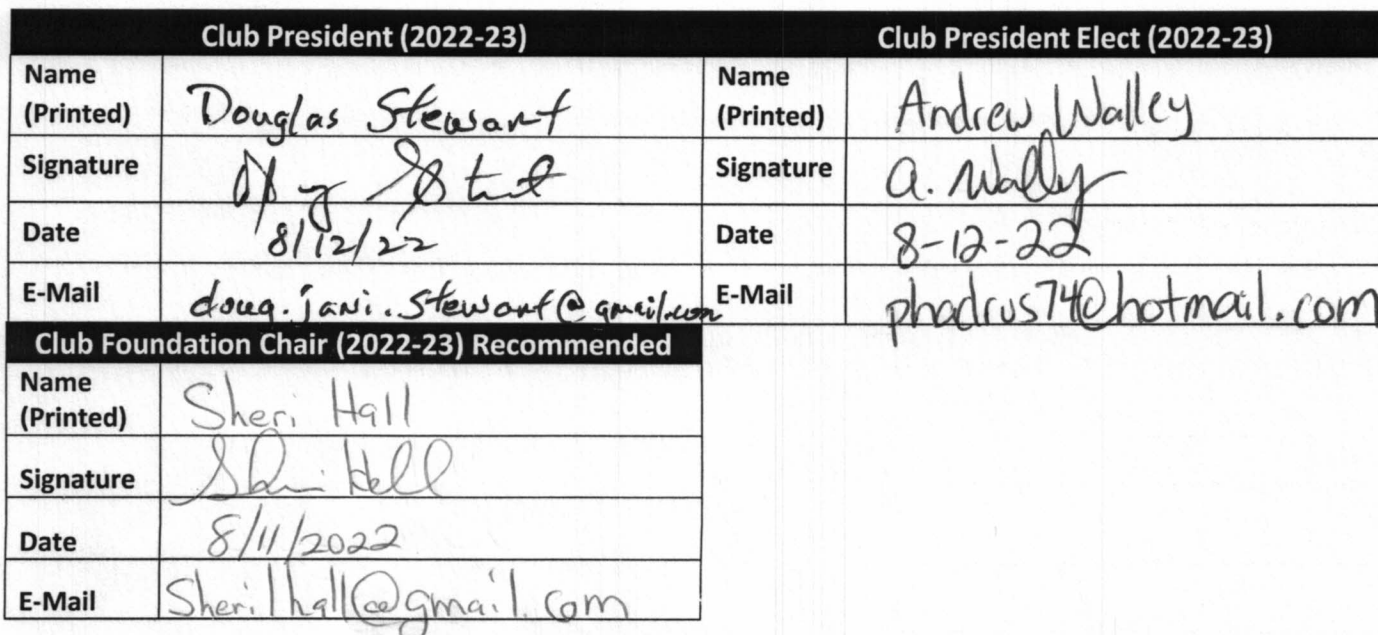 Club President (2022-23)
Name (Printed) Douglas Stewart
Signature
Date 8/12/22
E-Mail doug.jani.stewart@gmail.com
Club President Elect (2022-23)
Name (Printed) Andrew Walley
Signature A. Walley
Date 8-12-22
E-Mail phadrus74@hotmail.com
Club Foundation Chair (2022-23) Recommended
Name (Printed) Sheri Hall
Signature Sheri Hall
Date 8/11/2022
E-Mail Sherilhall@gmail.com